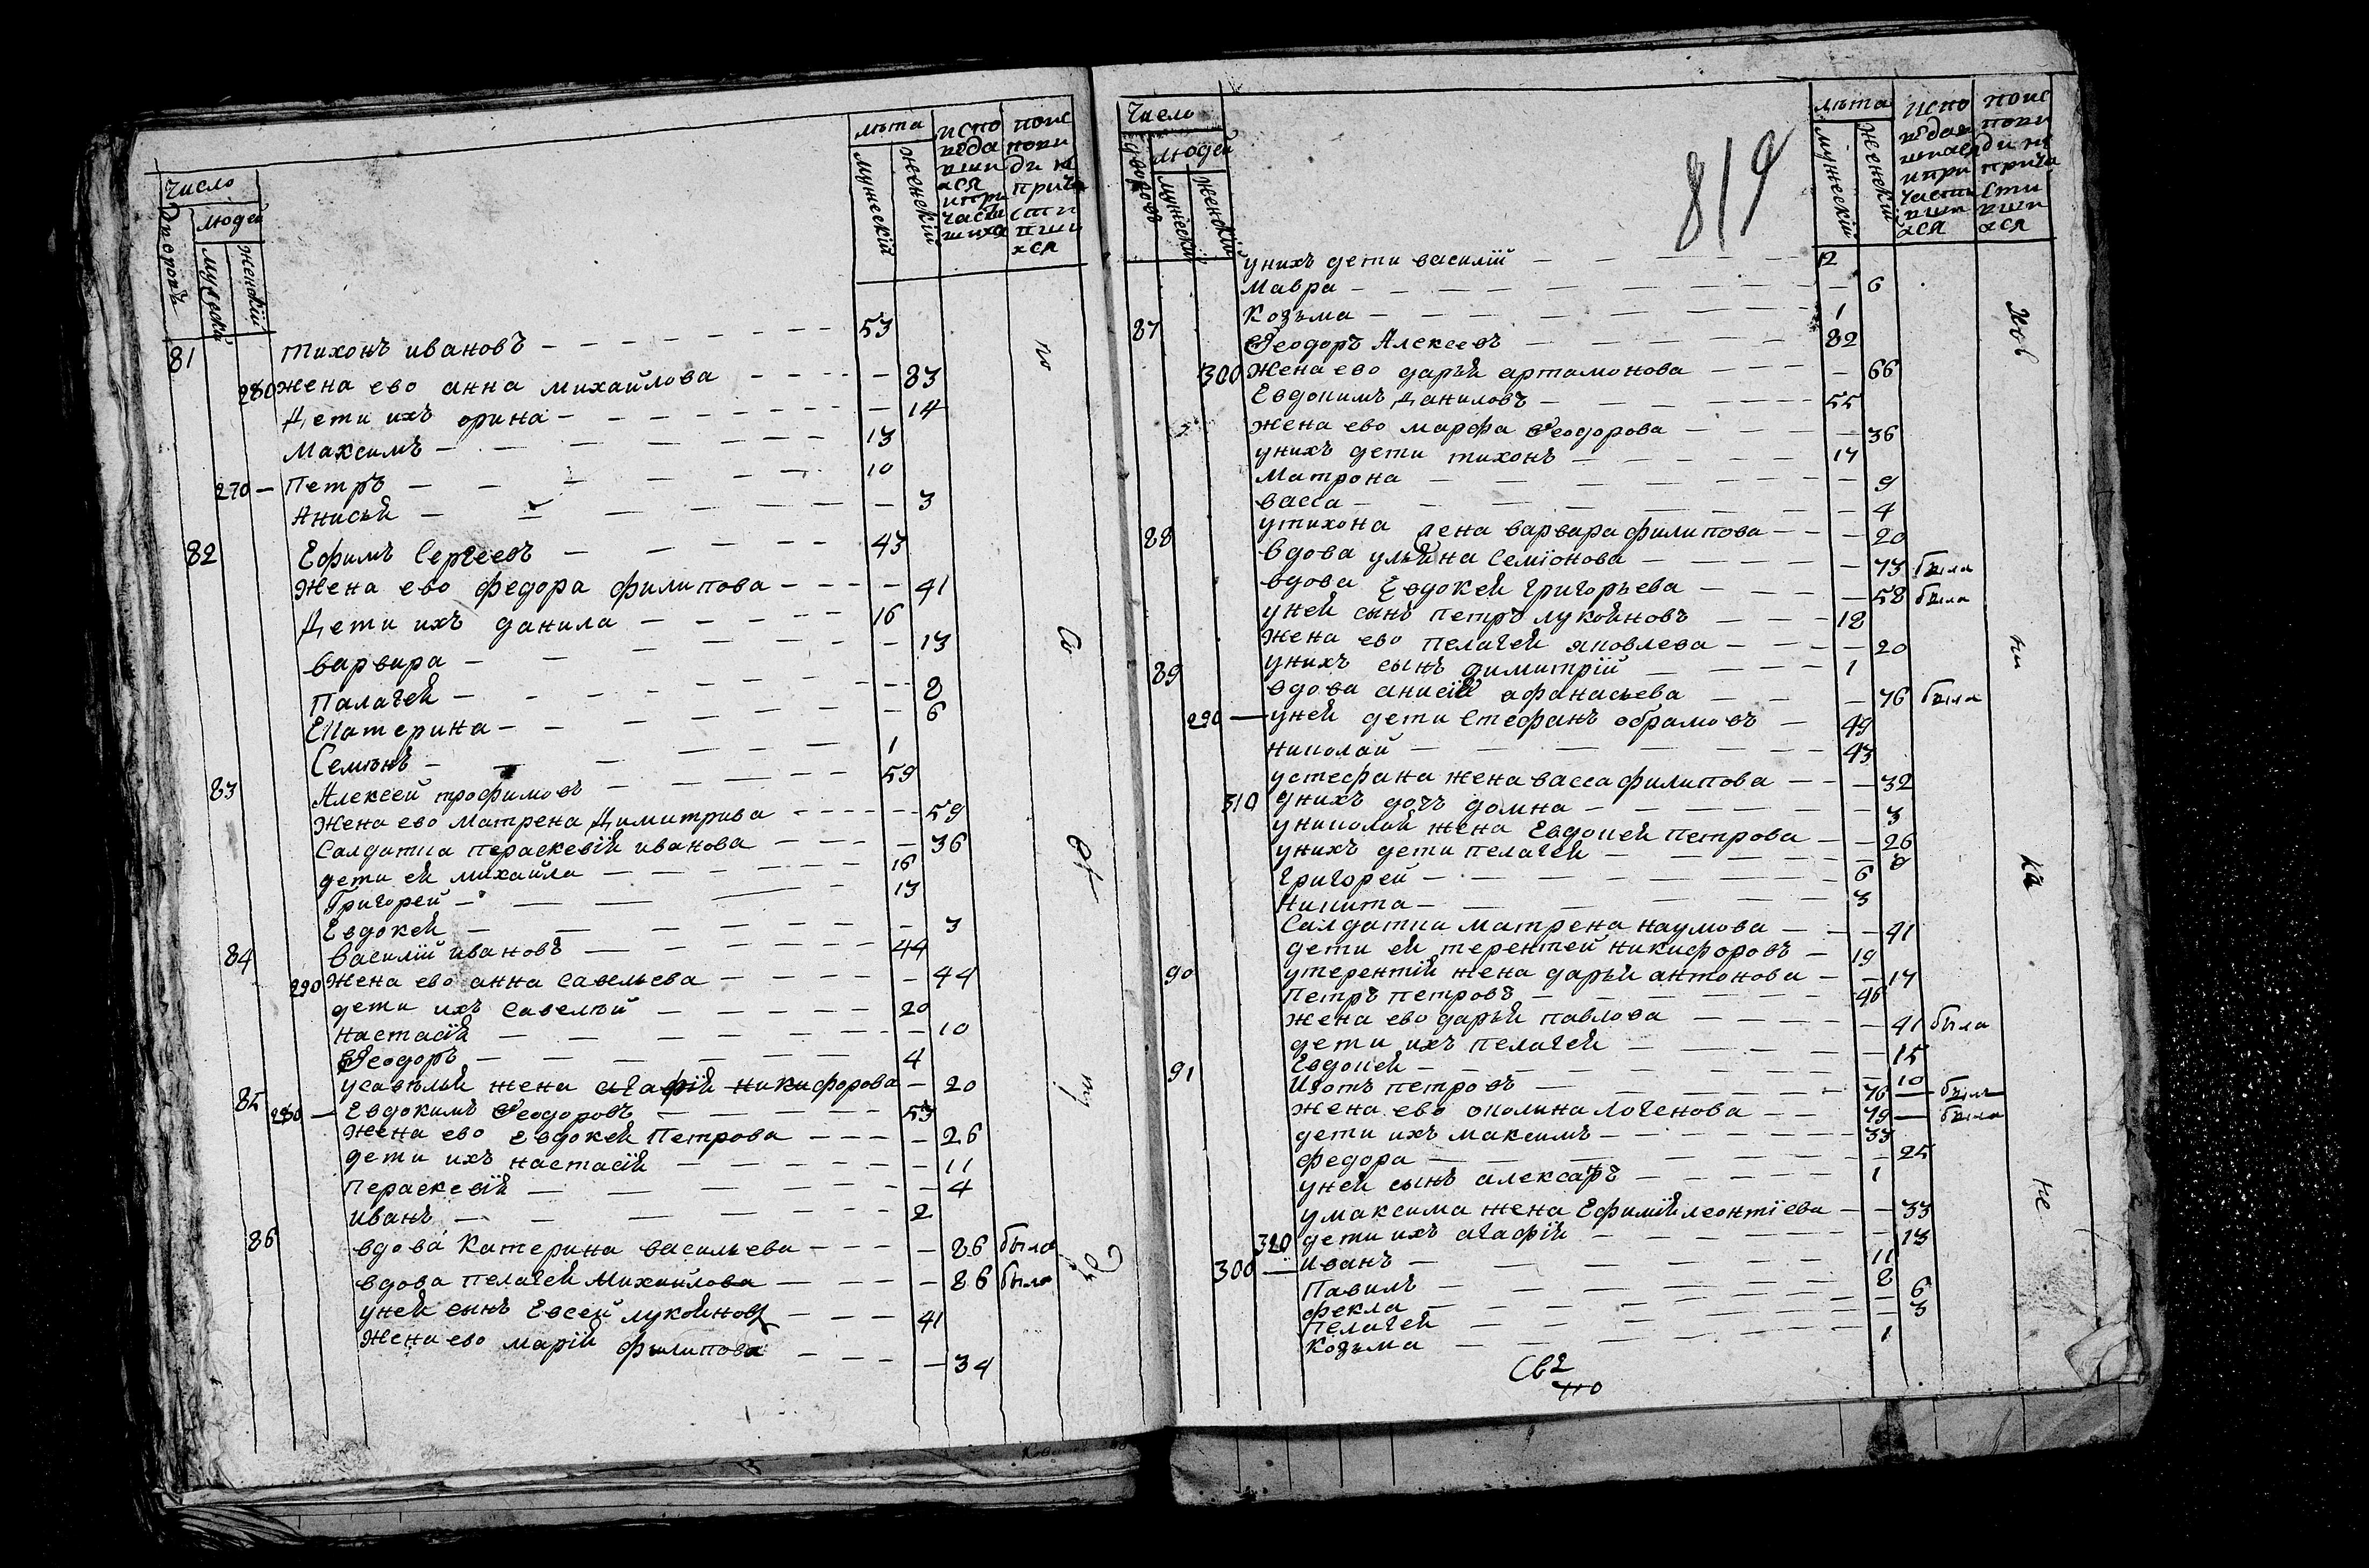 Число
Дворовъ
людей
мужескій
женскій
лѣта
мужескій
женскій
испо
веда
вши
хся
ипри
части
вшихся
поис
пови
ди не
прича
сти
вши
хся
81 тихонъ ивановъ — 53
280 жена ево анна михайлова — 83
Дети ихъ орина — 14
Максимъ — 13
270 — Петръ — 10
Анисья — 3
82 Ефимъ Сергеевъ — 43
Жена ево федора филипова — 41
Дети ихъ данила — 16
варвара — 13
Палагея — 8
Екатерина — 6
Семѣнъ — 1
83 Алексей трофимовъ — 59
Жена ево матрена Димитрива — 59
Салдатка пераскевія иванова — 36
дети ея михайла — 16
Григорей — 13
Евдокея — 3
84 Василій ивановъ — 44
290 Жена ево анна савельева — 44
дети ихъ савелѣй — 20
настасія — 10
Ѳеодоръ — 4
усавѣлья жена агафія никифорова — 20
85 280 — Евдокимъ Ѳеодоровъ — 53
жена ево евдокея Петрова — 26
дети ихъ настасія — 11
пераскевія — 4
иванъ — 2
86 вдова Катерина васильева — 86 была
вдова пелагея Михаилова — 86 была
уней сынъ Евсей лукояновъ — 41
Жена ево марія филипова — 34
по
Со
от
ну
819
Число
дворовъ
людей
мужескій
женскій
лѣта
мужескій
женскій
испо
ведав
шихся
ипри
части
вши
хся
поис
пови
ди не
прича
сти
вши
хся
унихъ дети василій — 12
Мавра — 6
Козъма — 1
87 Ѳеодоръ Алексеевъ — 82
300 Жена ево дарья артамонова — 66
Евдокимъ Даниловъ — 55
жена ево марфа Ѳеодорова — 36
унихъ дети тихонъ — 17
Матрона — 9
васса — 4
утихона жена варвара филипова — 20
88 вдова ульяна семіонова — 73 была
вдова Евдокея григорьева — 58 была
уней сынъ петръ лукояновъ — 18
жена ево пелагея яковлева — 20
унихъ сынъ димитрій — 1
89 вдова анисія афанасьева — 76 была
290 — уней дети стефанъ обрамовъ — 49
николай — 43
устефана жена васса филипова — 32
310 унихъ дочь домна — 3
униколая жена Евдокея петрова — 26
унихъ дети пелагея — 8
григорей — 6
Никита — 3
Салдатка матрена наумова — 41
дети ея терентей никифоровъ — 19
утерентія жена дарья антонова — 17
90 петръ петровъ — 46
жена ево дарья павлова — 41 была
дети ихъ пелагея — 15
Евдокея — 10
91 Изотъ петровъ — 76 — былъ
жена ево околина логенова — 79 — была
дети ихъ максимъ — 33
федора — 25
уней сынъ алексанръ — 1
умаксима жена Ефимія леонтіева — 33
320 дети ихъ агафія — 13
300 — иванъ — 11
Павилъ — 8
фекла — 6
пелагея — 3
козъма — 1
ков
ни
ка
не